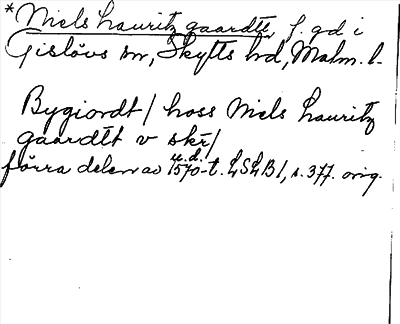 *Niels Lauritz gaardtt, f. gd i
Gislövs sn, Skytts hd, Malm. l.
Bygiordt / hoss Niels Lauritz
gaardtt v skr /
u.d.
förra delen av 1570-t. LSLB 1, s. 377. orig.